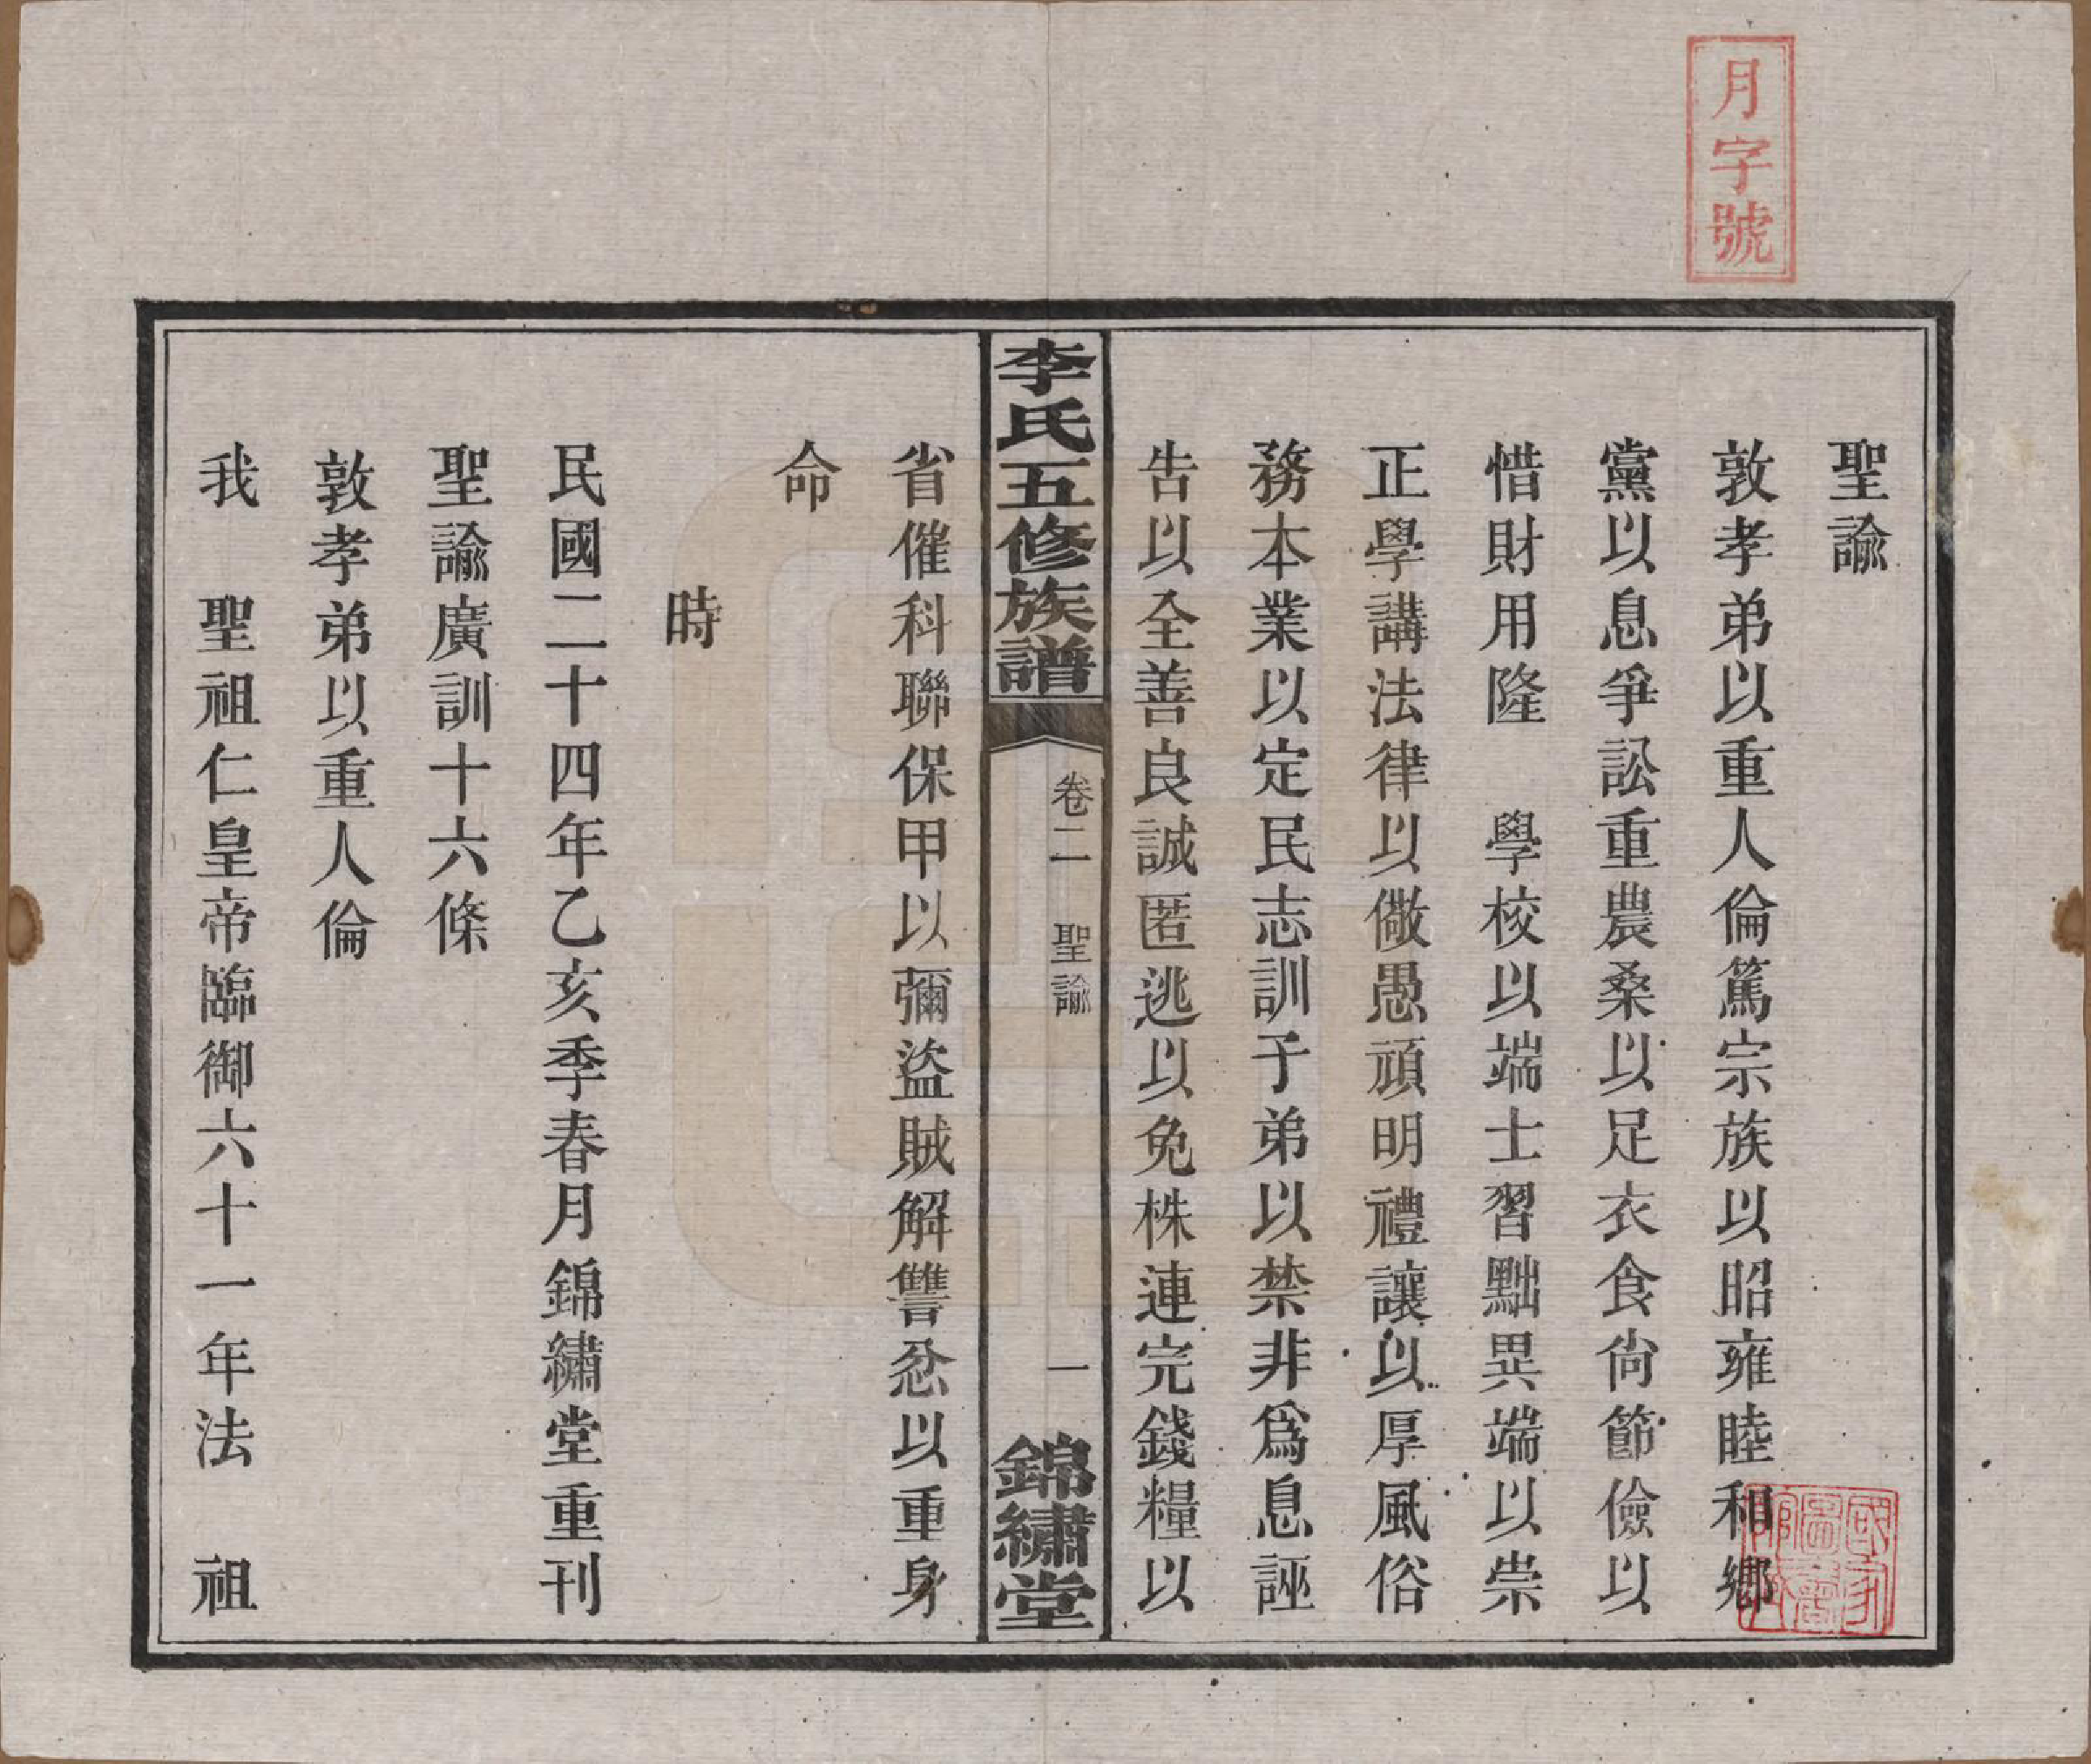 月字號
聖諭
敦孝弟以重人倫篤宗族以昭雍睦和鄉
黨以息爭訟重農桑以足衣食尙節儉以
惜財用隆　學校以端士習黜異端以崇
正學講法律以儆愚頑明禮讓以厚風俗
務本業以定民志訓于弟以禁非爲息誣
告以全善良誠匿逃以免株連完錢糧以
李氏五修族譜
卷二　聖諭
一
錦繡堂
省催科聯保甲以彌盜賊解讐忿以重身
命
時
民國二十四年乙亥季春月錦繡堂重刊
聖諭廣訓十六條
敦孝弟以重人倫
我　聖祖仁皇帝臨御六十一年法　祖